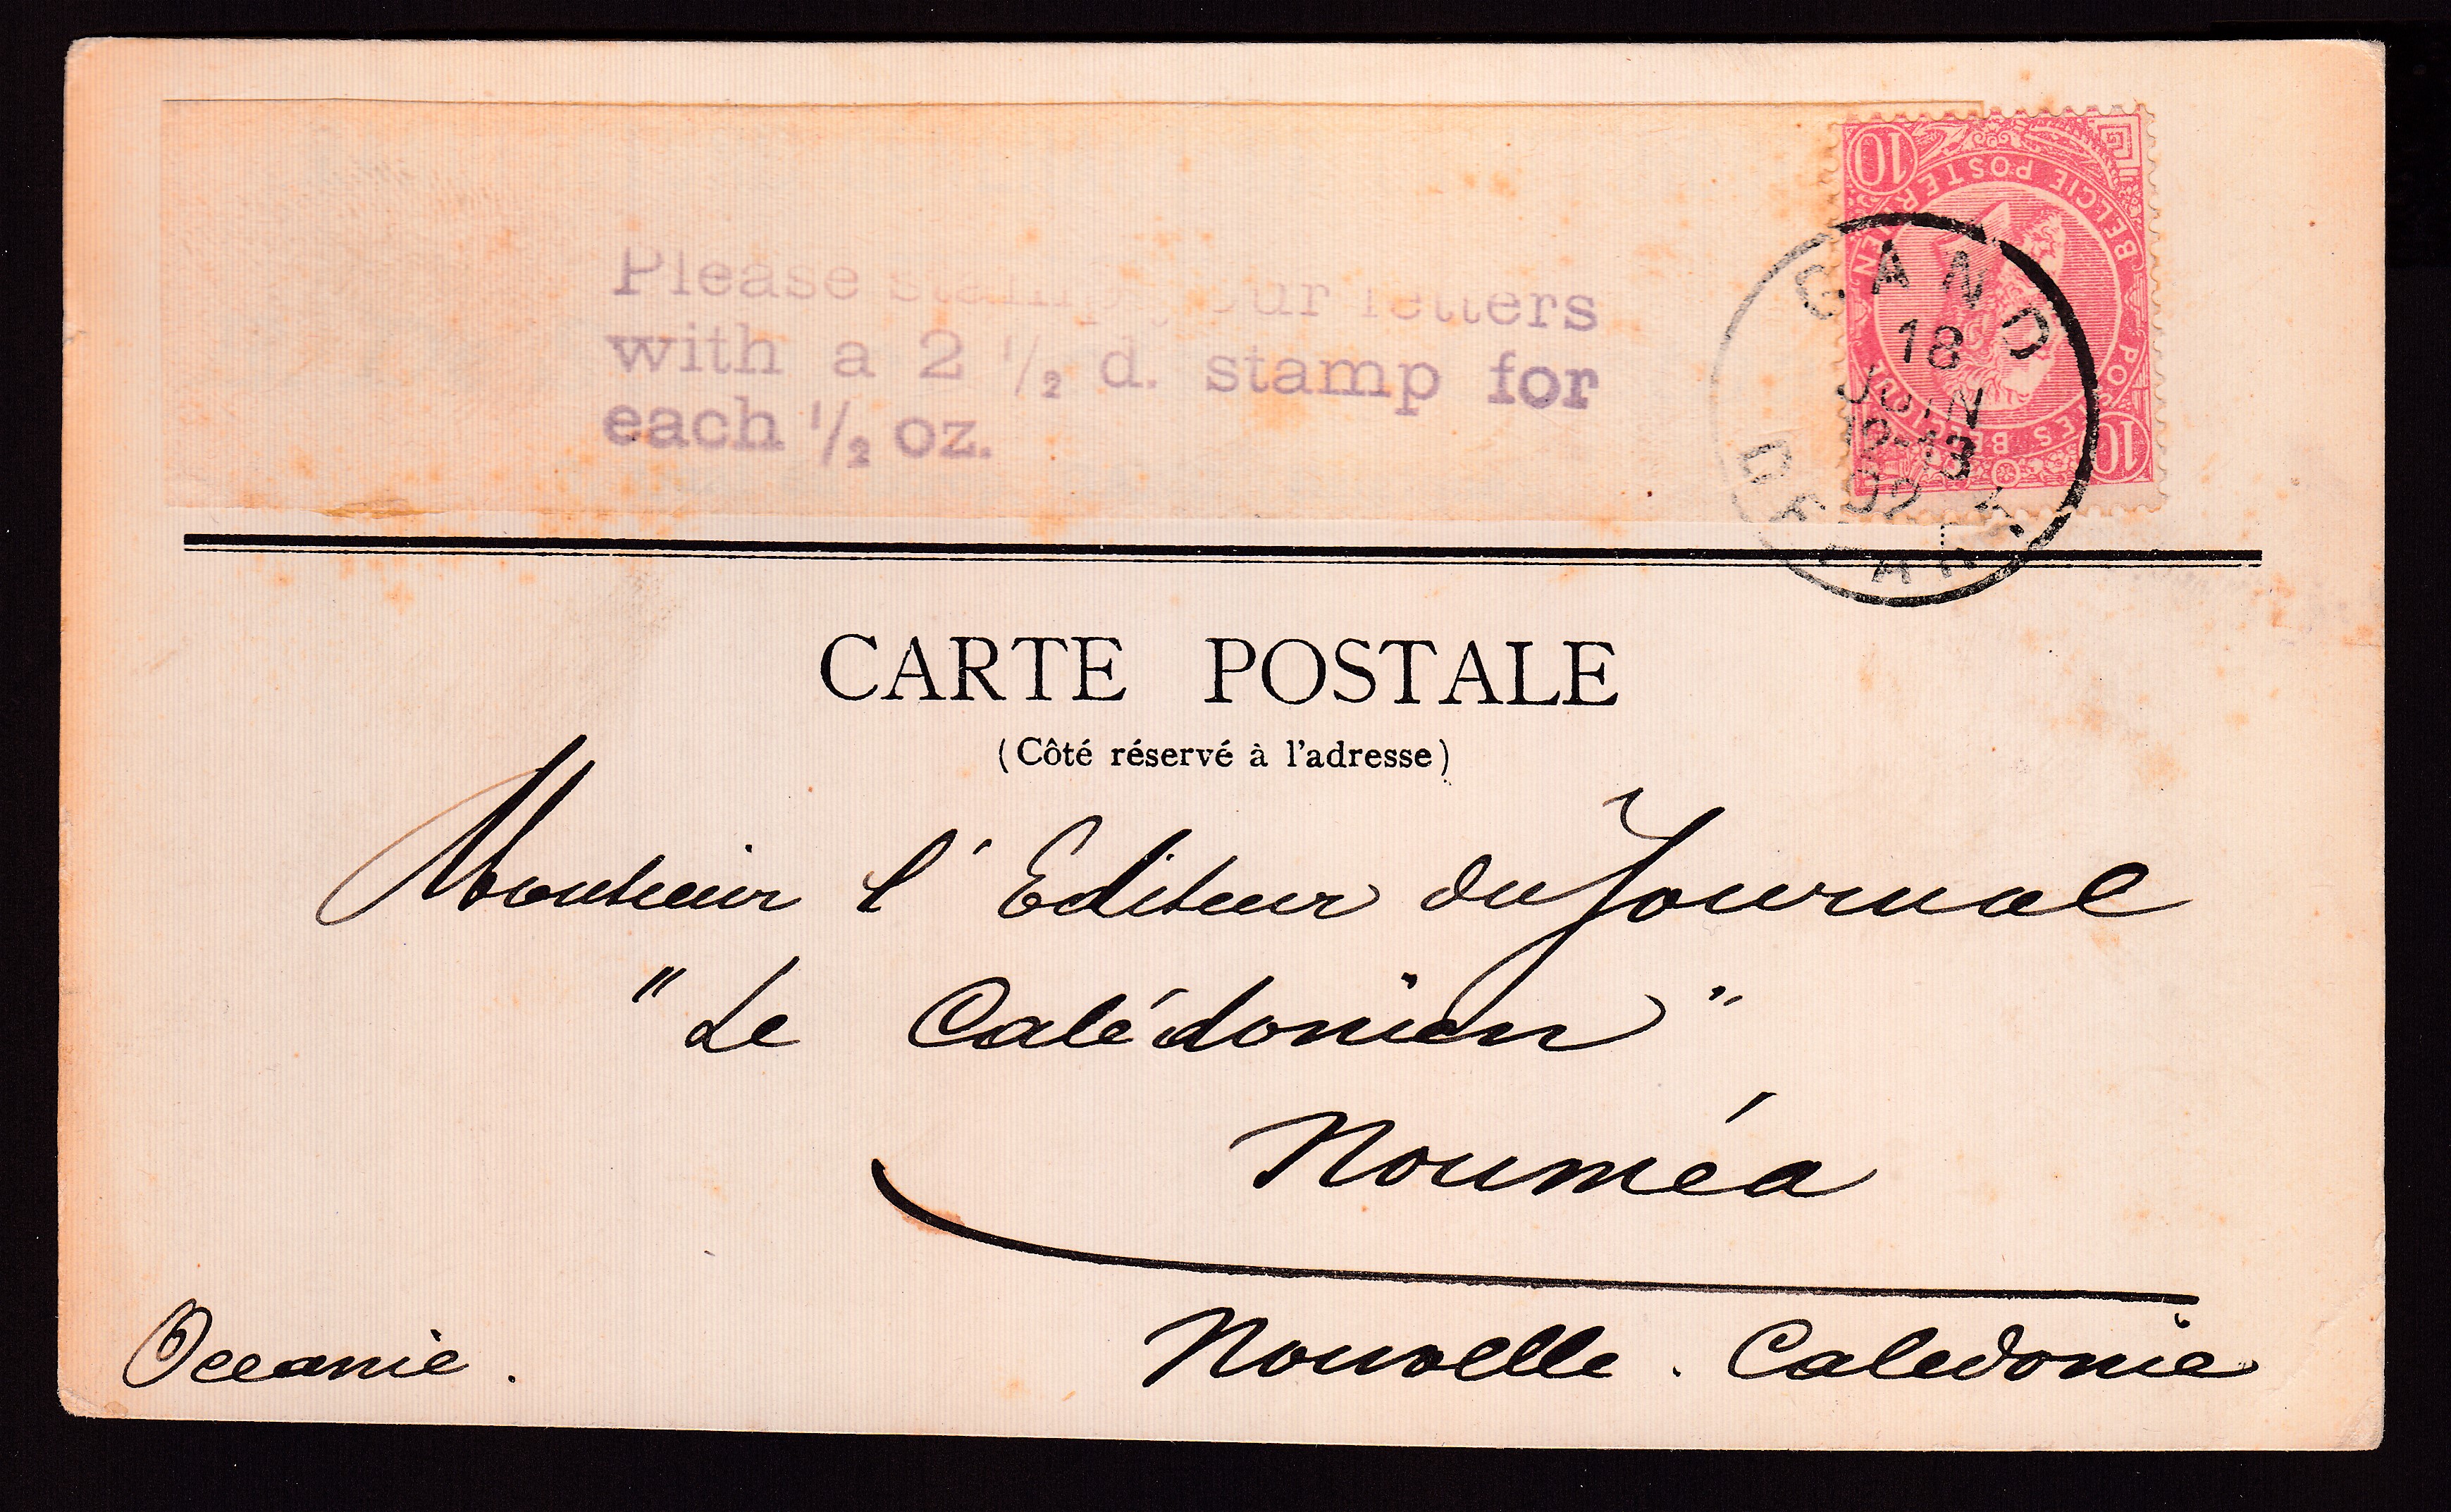 Please stamp your letters
with a 2 1/2 d. stamp for
each 1/2 oz.
10
BELGIË POSTERIJEN
POSTES BELGIQUE
10
GAND
18
JUIN
12-13
92
DEPART
CARTE POSTALE
(Côté réservé à l'adresse)
Monsieur l'Editeur du Journal
"Le Calédonien"
Nouméa
Oceanie.
Nouvelle. Caledonie